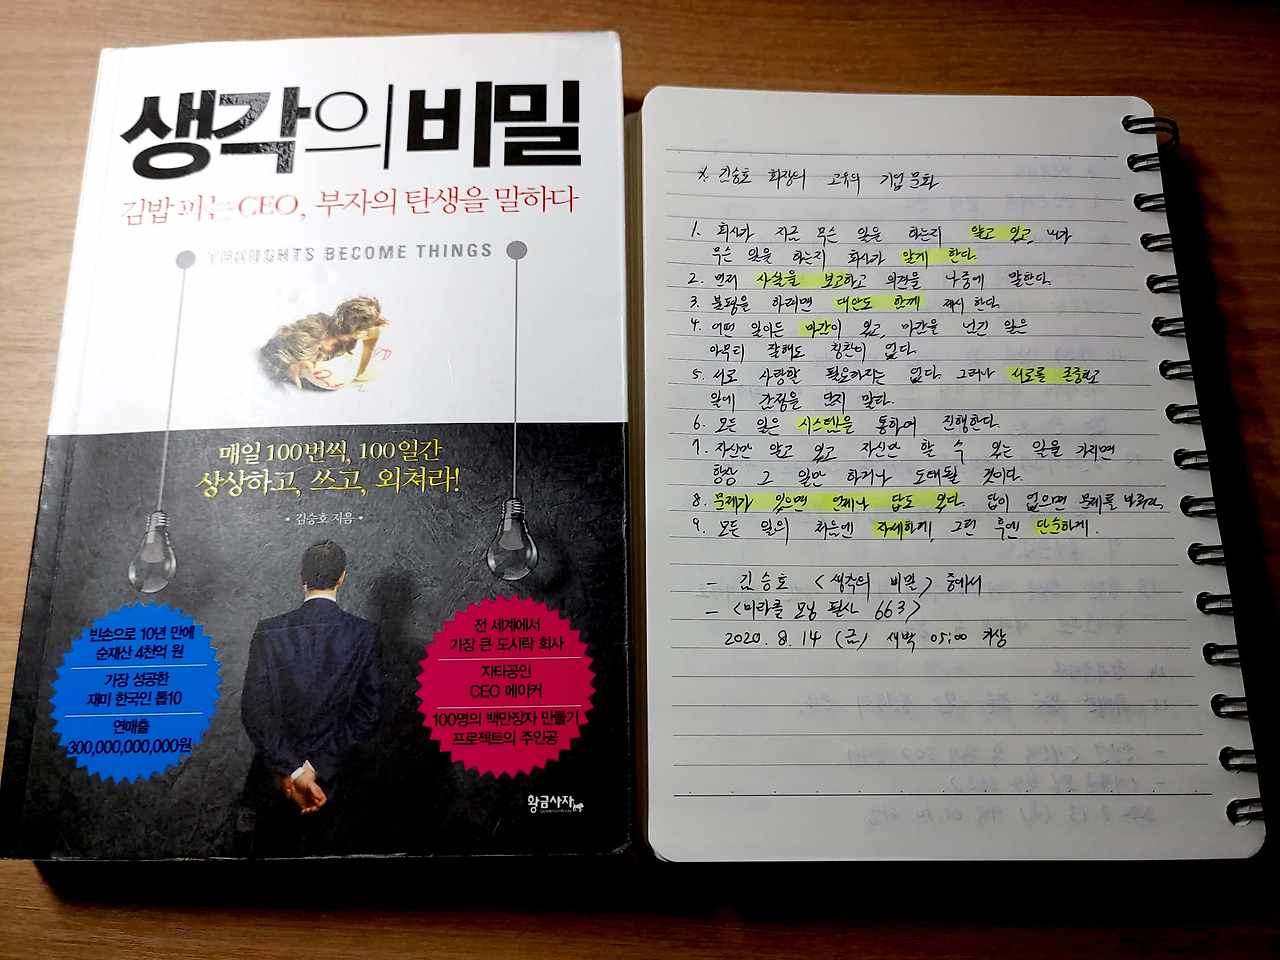 생각의 비밀
김밥 파는 CEO, 부자의 탄생을 말하다
THOUGHTS BECOME THINGS
매일 100번씩, 100일간
상상하고, 쓰고, 외쳐라!
• 김승호 지음 •
빈손으로 10년 만에
순재산 4천억 원
가장 성공한
재미 한국인 톱10
연매출
300,000,000,000원
전 세계에서
가장 큰 도시락 회사
자타공인
CEO 메이커
100명의 백만장자 만들기
프로젝트의 주인공
황금사자
※ 김승호 회장의 고유의 기업 문화
1. 회사가 지금 무슨 일을 하는지 알고 있고, 내가
무슨 일을 하는지 회사가 알게 한다.
2. 먼저 사실을 보고하고 의견을 나중에 말한다.
3. 불평을 하려면 대안도 함께 제시 한다.
4. 어떤 일이든 마감이 있고, 마감을 넘긴 일은
아무리 잘해도 칭찬이 없다.
5. 서로 사랑할 필요까지는 없다. 그러나 서로를 존중하고
일에 감정을 먼지 말라.
6. 모든 일은 시스템을 통하여 진행한다.
7. 자신만 알고 있고 자신만 할 수 있는 일을 가지면
항상 그 일만 하거나 도태될 것이다.
8. 문제가 있으면 언제나 답도 있다. 답이 없으면 문제를 바꿔라.
9. 모든 일의 처음엔 자세하게, 그런 후엔 단순하게.
- 김승호 <생각의 비밀> 중에서
- <미라클 모닝 필사 663>
2020. 8. 14 (금) 새벽 05:00 기상